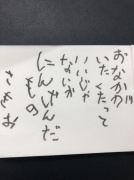 おなかわ
いたくたって
いいじゃ
ないか
にんげんだ
もの
さきお